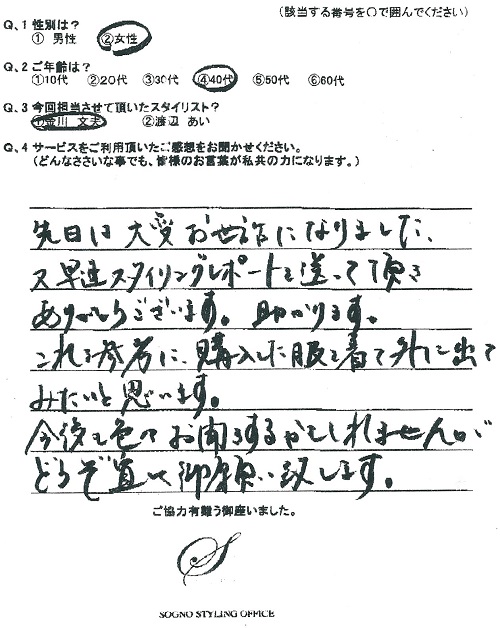 (該当する番号を○で囲んでください)
Q、1 性別は?
① 男性 ②女性
Q、2 ご年齢は?
①10代 ②20代 ③30代 ④40代 ⑤50代 ⑥60代
Q、3 今回担当させて頂いたスタイリスト?
①金川 文夫 ②渡辺 あい
Q、4 サービスをご利用頂いたご感想をお聞かせください。
(どんなささいな事でも、皆様のお言葉が私共の力になります。)
先日は大変お世話になりました、
又早速スタイリングレポートを送って頂き
ありがとうございます。助かります。
これを参考に、購入した服を着て外に出て
みたいと思います。
今後も色々お聞きするかもしれませんが
どうぞ宜しく御願い致します。
ご協力有難う御座いました。
S
SOGNO STYLING OFFICE